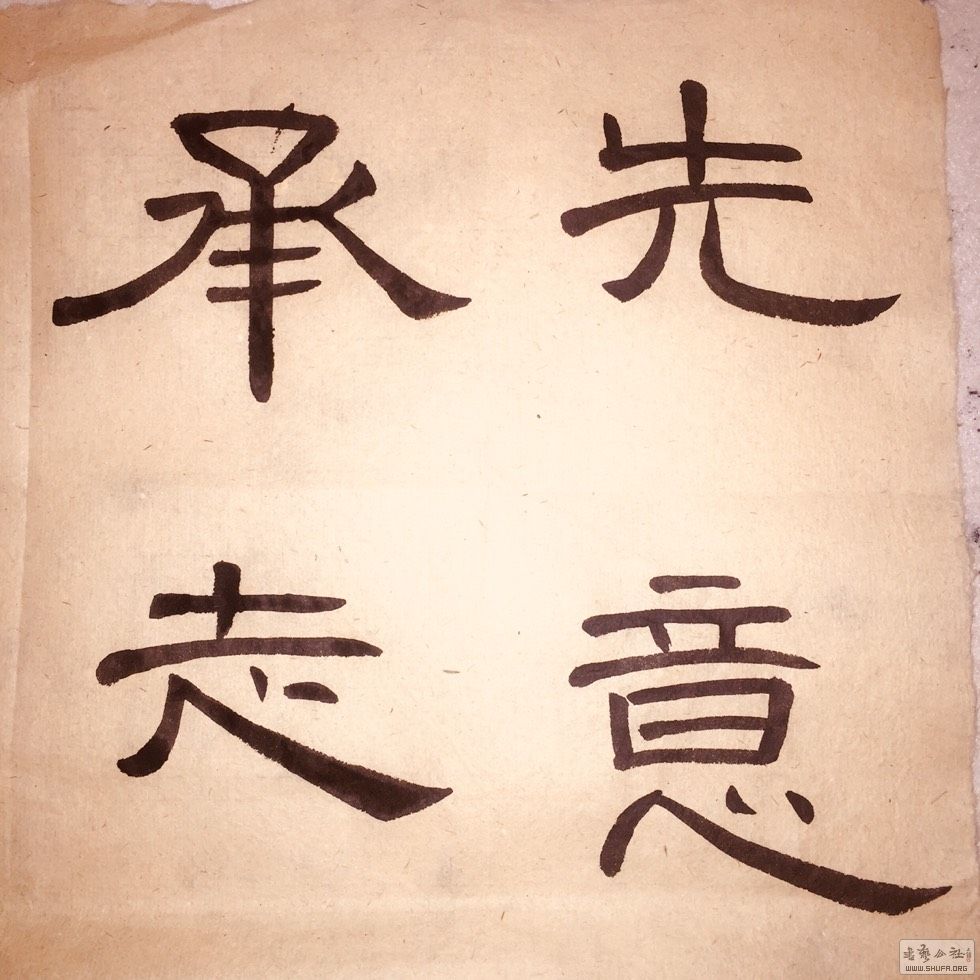 先意
承志
书艺公社
WWW.SHUFA.ORG